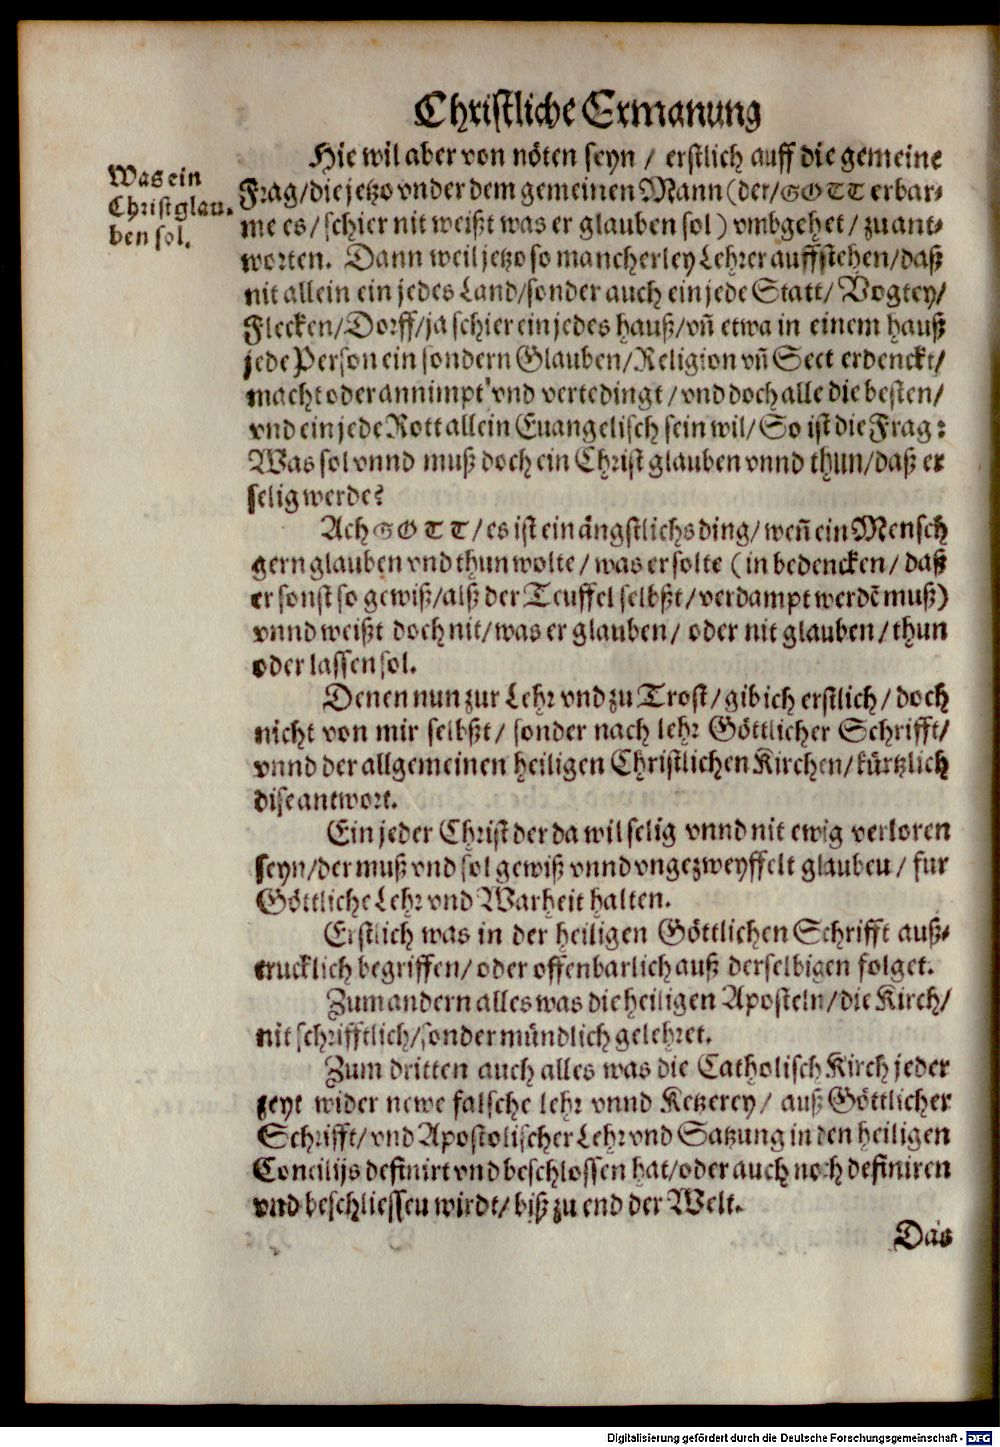 Christliche Ermanung
Was ein
Christ glau-
ben sol.
Hie wil aber von nöten seyn / erstlich auff die gemeine
Frag/die jetzo vnder dem gemeinen Mann (der/GOTT erbar-
me es/schier nit weißt was er glauben sol) vmbgehet/ zu ant-
worten. Dann weil jetzo so mancherley Lehrer auffstehen/daß
nit allein ein jedes Land/sonder auch ein jede Statt/ Vogtey/
Flecken/Dorff/ja schier ein jedes hauß/vñ etwa in einem hauß
jede Person ein sondern Glauben/Religion vñ Sect erdenckt/
macht oder annimpt vnd vertedingt/vnd doch alle die besten/
vnd ein jede Rott allein Euangelisch sein wil/So ist die Frag:
Was sol vnnd muß doch ein Christ glauben vnnd thun/daß er
selig werde?
Ach GOTT/es ist ein ängstlichs ding/weñ ein Mensch
gern glauben vnd thun wolte/was er solte (in bedencken/daß
er sonst so gewiß/alß der Teuffel selbßt/verdampt werdē muß)
vnnd weißt doch nit/was er glauben/ oder nit glauben/thun
oder lassen sol.
Denen nun zur Lehr vnd zu Trost/gib ich erstlich/doch
nicht von mir selbßt/ sonder nach lehr Göttlicher Schrifft/
vnnd der allgemeinen heiligen Christlichen Kirchen/kürtzlich
dise antwort.
Ein jeder Christ der da wil selig vnnd nit ewig verloren
seyn/der muß vnd sol gewiß vnnd vngezweyffelt glauben/ fur
Göttliche Lehr vnd Warheit halten.
Erstlich was in der heiligen Göttlichen Schrifft auß-
trucklich begriffen/oder offenbarlich auß derselbigen folget.
Zum andern alles was die heiligen Aposteln/die Kirch/
nit schrifftlich/sonder mündlich gelehret.
Zum dritten auch alles was die Catholisch Kirch jeder
zeyt wider newe falsche lehr vnnd Ketzerey/ auß Göttlicher
Schrifft/vnd Apostolischer Lehr vnd Satzung in den heiligen
Concilijs definirt vnd beschlossen hat/oder auch noch definiren
vnd beschliessen wirdt/biß zu end der Welt.
Das
Digitalisierung gefördert durch die Deutsche Forschungsgemeinschaft - DFG